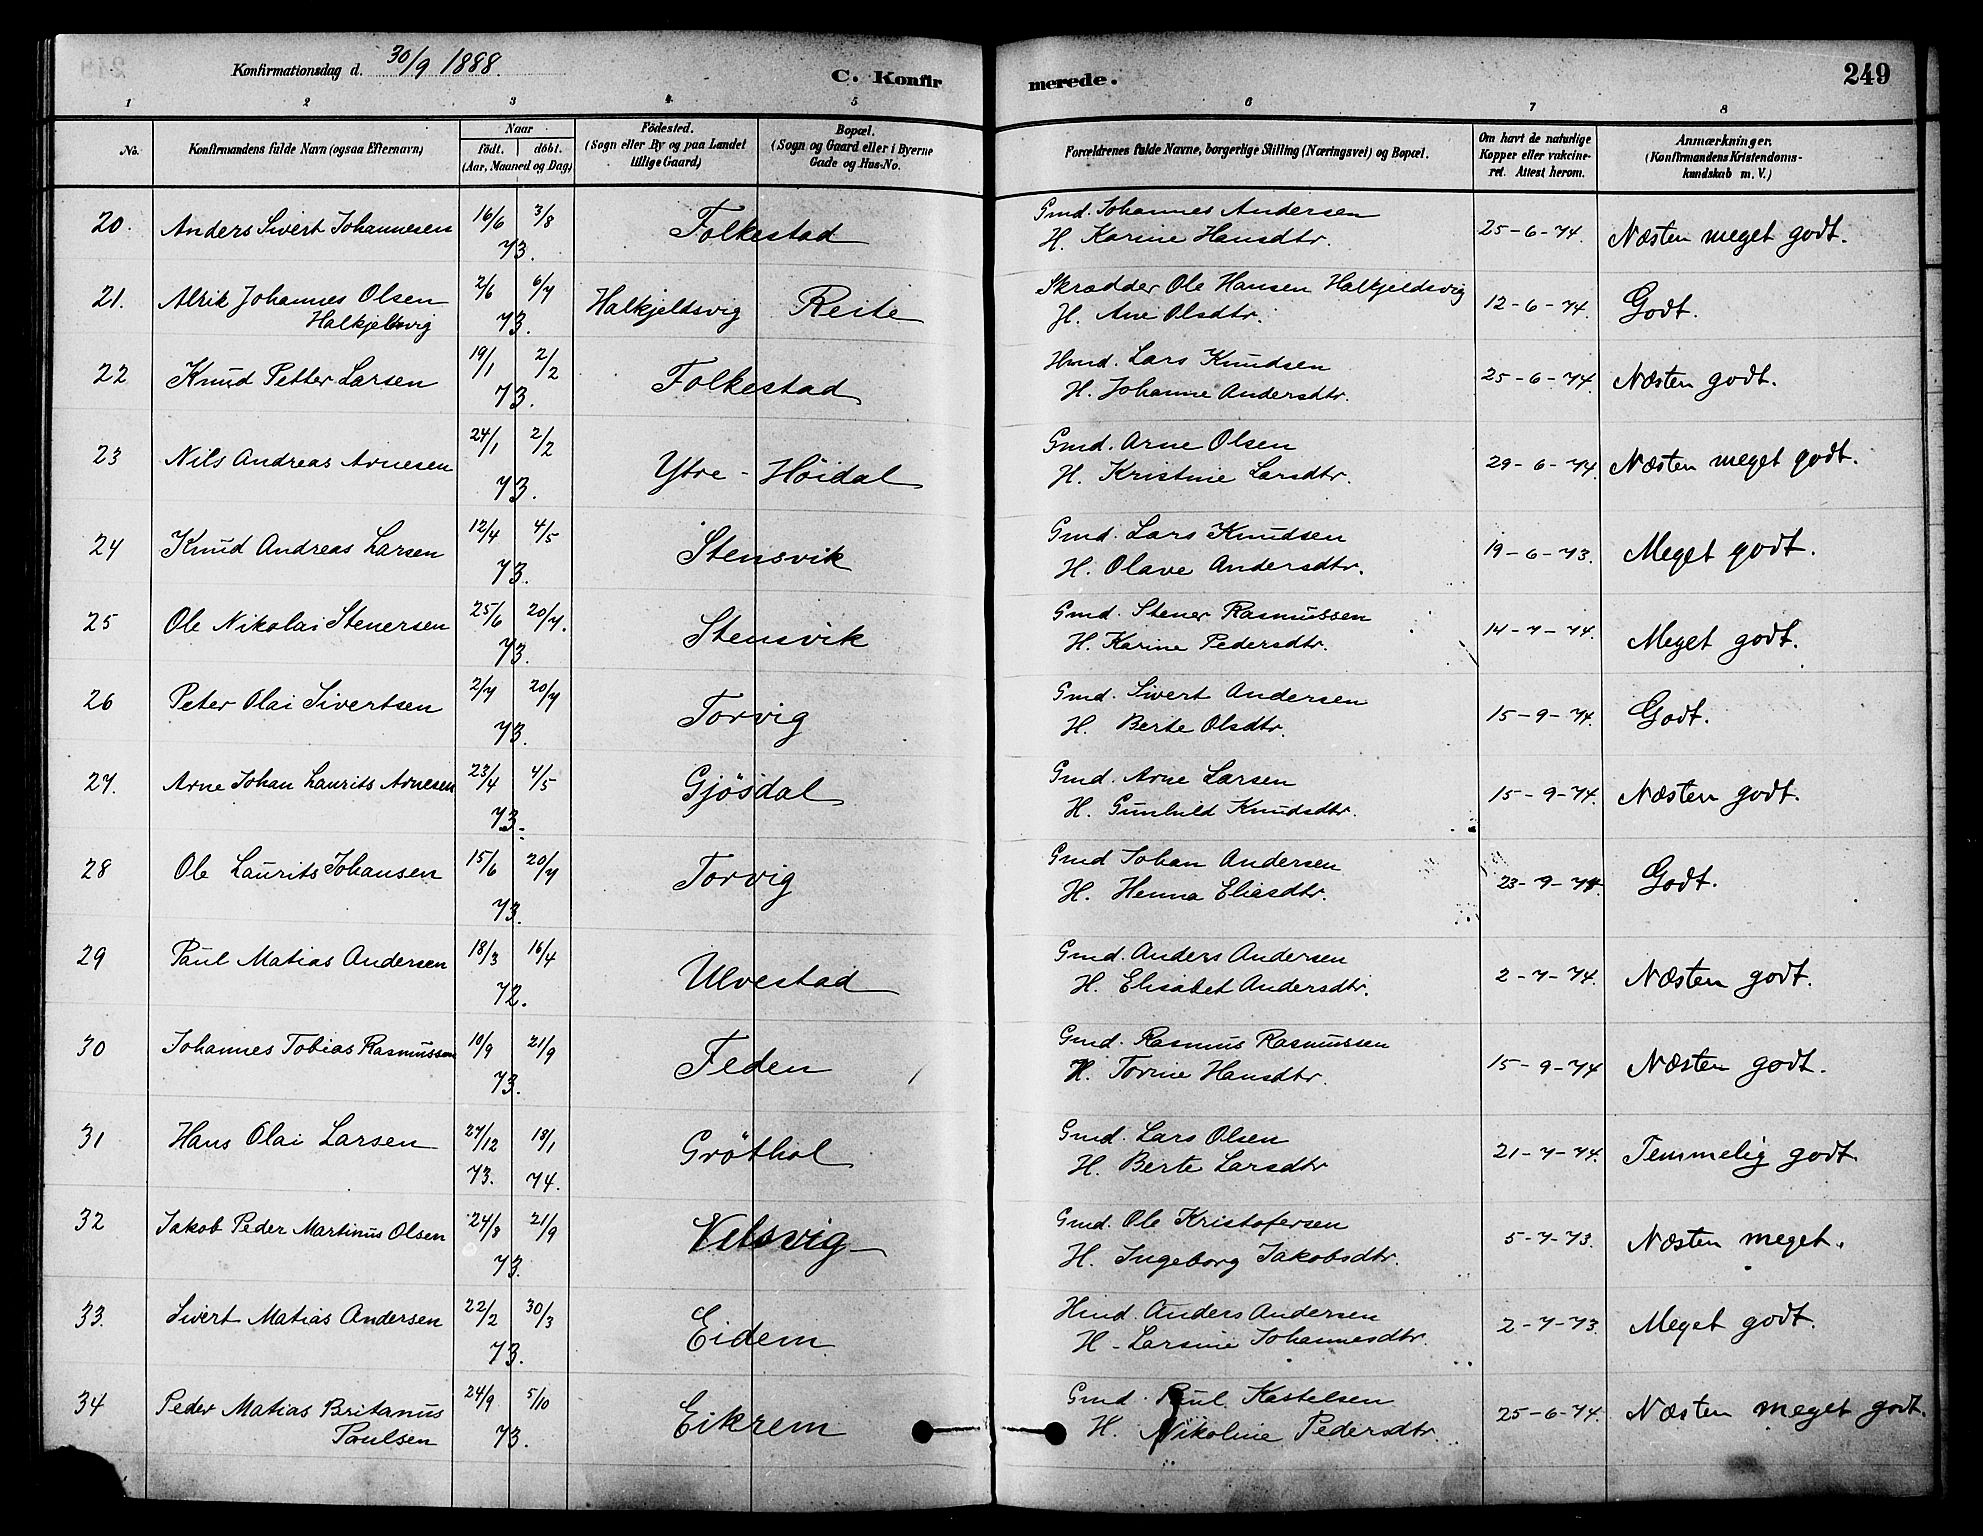 Konfirmationsdag d. 30/9 1888.
C. Konfirmerede.
249
1 2 3 4 5 6 7 8
No.
Konfirmandens fulde Navn (ogsaa Efternavn)
Naar
født. døbt.
(Aar, Maaned og Dag)
Födested.
(Sogn eller By og paa Landet
tillige Gaard)
Bopæl.
(Sogn og Gaard eller i Byerne
Gade og Hus-No.
Forældrenes fulde Navne, borgerlige Stilling (Næringsvei) og Bopæl.
Om havt de naturlige
Kopper eller vakcine-
ret. Attest herom.
Anmærkninger.
(Konfirmandens Kristendoms-
kundskab m. V.)
20. Anders Sivert Johannesen 16/6 3/8 73. Folkestad Gmd. Johannes Andersen 25-6-74. Næsten meget godt.
H. Karine Hansdtr.
21. Alrik Johannes Olsen 2/6 6/7 73. Halkjeldsvig Reite Skrædder Ole Hansen Halkjeldsvig 12-6-74. Godt.
Halkjeldsvig H. Ane Olsdtr.
22 Knud Petter Larsen 19/1 2/2 73. Folkestad Hmd. Lars Knudsen 25-6-74. Næsten godt.
H. Johanne Andersdtr.
23 Nils Andreas Arnesen 24/1 2/2 73. Ytre-Höidal Gmd. Arne Olsen 29-6-74. Næsten meget godt.
H. Kristine Larsdtr.
24 Knud Andreas Larsen 12/4 4/5 73. Stensvik Gmd. Lars Knudsen 19-6-73. Meget godt.
H. Olave Andersdtr.
25 Ole Nikolai Stenersen 25/6 20/7. 73. Stensvik Gmd. Stener Rasmussen 14-7-74. Meget godt.
H. Karine Pedersdtr.
26 Peter Olai Sivertsen 2/7 20/7 73. Torvig Gmd. Sivert Andersen 15-9-74. Godt.
H. Berte Olsdtr.
27. Arne Johan Laurits Arnesen 23/4 4/5 73. Gjösdal Gmd. Arne Larsen 15-9-74. Næsten godt.
H. Gunhild Knudsdtr.
28 Ole Laurits Johansen 15/6 20/7 73. Torvig Gmd Johan Andersen 23-9-74. Godt.
H. Henna Eliasdtr.
29 Paul Matias Andersen 18/3 16/4 72. Ulvestad Gmd. Anders Andersen 2-7-74. Næsten godt.
H. Elisabet Andersdtr.
30 Johannes Tobias Rasmussen 10/9 21/9 73. Feden Gmd. Rasmus Rasmussen 15-9-74 Næsten godt.
H. Torine Hansdtr.
31 Hans Olai Larsen 27/12 73. 18/1 74. Gröthol Gmd. Lars Olsen 21-7-74. Temmelig godt.
H. Berte Larsdtr
32 Jakob Peder Martinus Olsen 24/8 21/9 73. Velsvig Gmd. Ole Kristofersen 5-7-73. Næsten meget.
H. Ingeborg Jakobsdtr.
33. Sivert Matias Andersen 22/2 30/3 73. Eidem Hmd. Anders Andersen 2-7-73. Meget godt.
H - Larsine Johannesdtr.
34 Peder Matias Britanus 24/9 5/10 73. Eikrem Gmd. Paul Kastelsen 25-6-74. Næsten meget godt.
Paulsen H. Nikoline Pedersdtr.